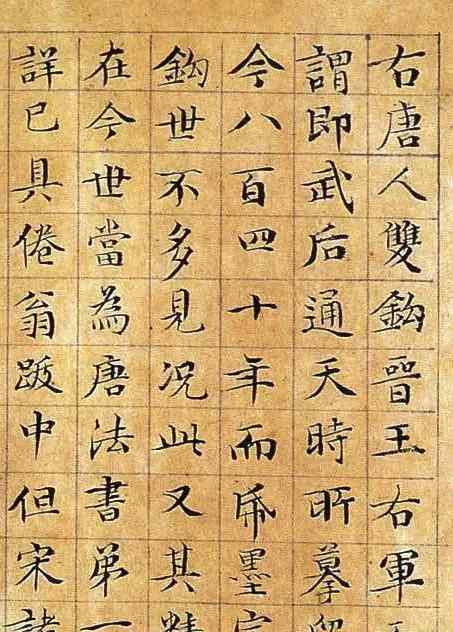 右唐人雙鈎晉王右軍
謂即武后通天時所摹
今八百四十年而帋墨
鈎世不多見况此又其
在今世當為唐法書弟一
詳已具倦翁跋中但宋諸